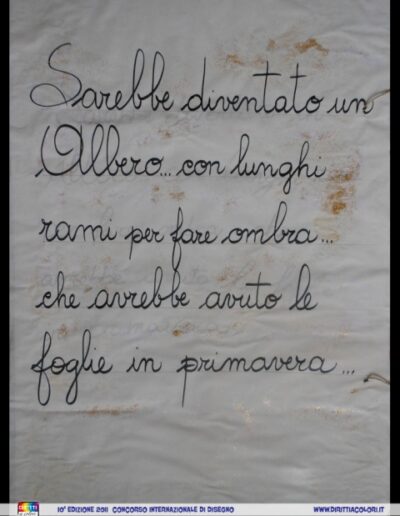 Sarebbe diventato un
Albero... con lunghi
rami per fare ombra...
che avrebbe avuto le
foglie in primavera...
10ª EDIZIONE 2011 CONCORSO INTERNAZIONALE DI DISEGNO WWW.DIRITTIACOLORI.IT